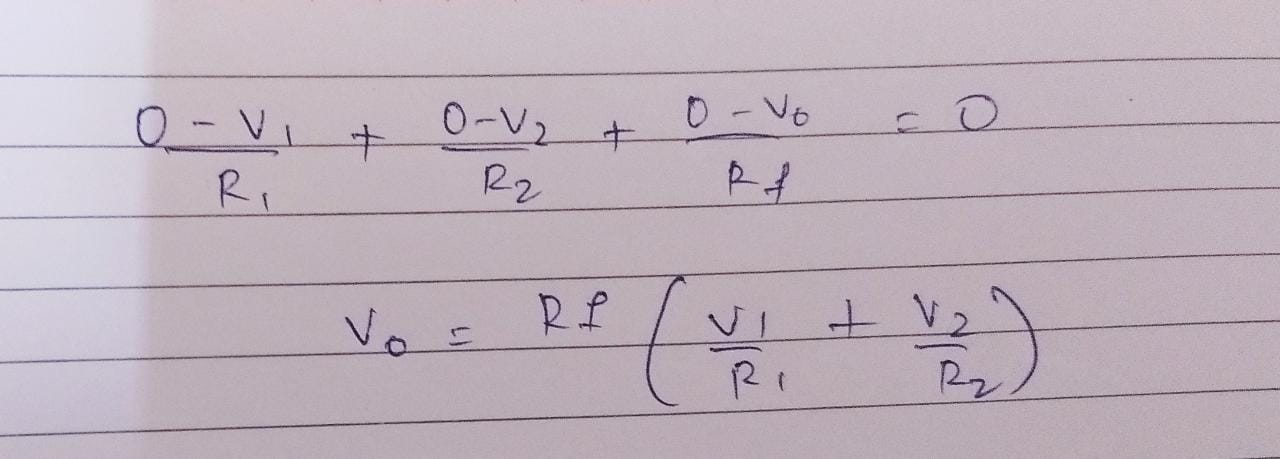 (0 - V₁)/R₁ + (0 - V₂)/R₂ + (0 - V₀)/Rf = 0
V₀ = Rf (V₁/R₁ + V₂/R₂)